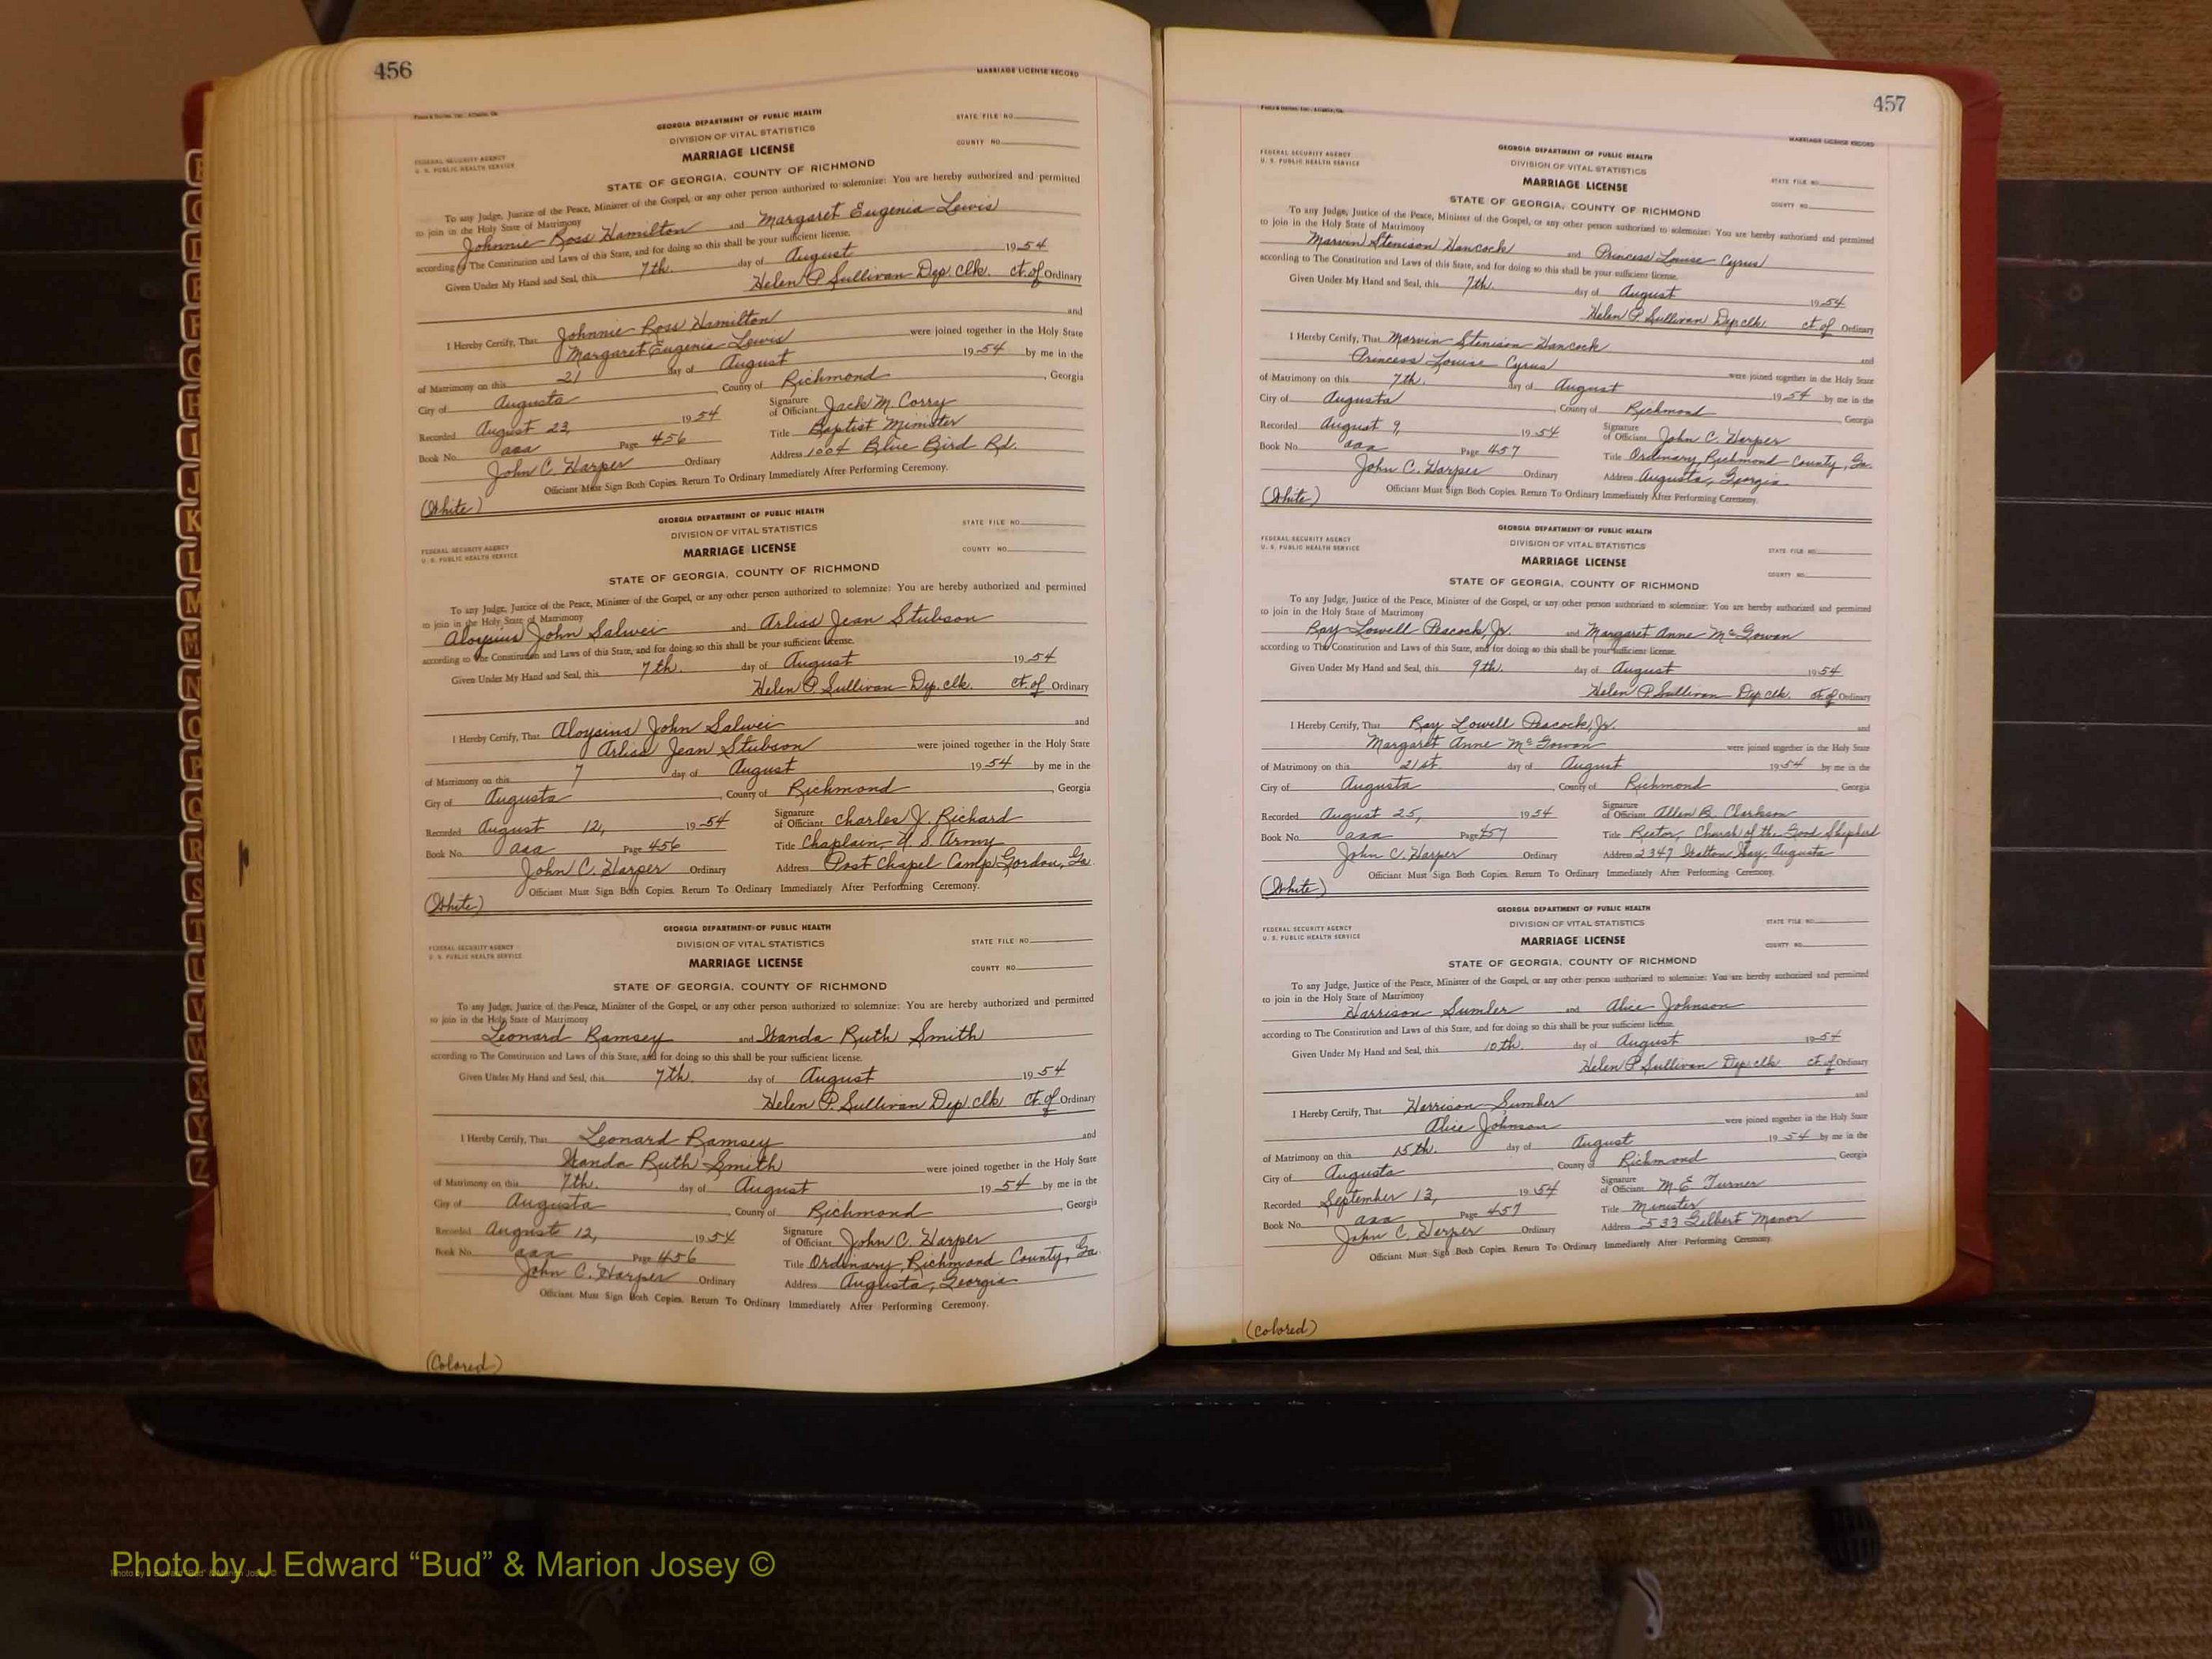 456
MARRIAGE LICENSE RECORD
GEORGIA DEPARTMENT OF PUBLIC HEALTH
STATE FILE NO.
DIVISION OF VITAL STATISTICS
COUNTY NO.
FEDERAL SECURITY AGENCY
U. S. PUBLIC HEALTH SERVICE
MARRIAGE LICENSE
STATE OF GEORGIA, COUNTY OF RICHMOND
To any Judge, Justice of the Peace, Minister of the Gospel, or any other person authorized to solemnize: You are hereby authorized and permitted
to join in the Holy State of Matrimony
Johnnie Ross Hamilton and Margaret Eugenia Lewis
according to The Constitution and Laws of this State, and for doing so this shall be your sufficient license.
Given Under My Hand and Seal, this 7th. day of August 1954
Helen P. Sullivan Dep. clk. ct. of Ordinary
I Hereby Certify, That Johnnie Ross Hamilton and
Margaret Eugenia Lewis were joined together in the Holy State
of Matrimony on this 21 day of August 1954 by me in the
City of Augusta, County of Richmond, Georgia
Recorded August 23, 1954 Signature of Officiant Jack M. Corry
Book No. aaa Page 456 Title Baptist Minister
John C. Harper Ordinary Address 1004 Blue Bird Rd.
Officiant Must Sign Both Copies. Return To Ordinary Immediately After Performing Ceremony.
(White)
GEORGIA DEPARTMENT OF PUBLIC HEALTH
DIVISION OF VITAL STATISTICS
STATE FILE NO.
FEDERAL SECURITY AGENCY
U. S. PUBLIC HEALTH SERVICE
MARRIAGE LICENSE
COUNTY NO.
STATE OF GEORGIA, COUNTY OF RICHMOND
To any Judge, Justice of the Peace, Minister of the Gospel, or any other person authorized to solemnize: You are hereby authorized and permitted
to join in the Holy State of Matrimony
Aloysius John Salwei and Arliss Jean Stubson
according to The Constitution and Laws of this State, and for doing so this shall be your sufficient license.
Given Under My Hand and Seal, this 7th. day of August 1954
Helen P. Sullivan Dep. clk. ct. of Ordinary
I Hereby Certify, That Aloysius John Salwei and
Arliss Jean Stubson were joined together in the Holy State
of Matrimony on this 7 day of August 1954 by me in the
City of Augusta, County of Richmond, Georgia
Recorded August 12, 1954 Signature of Officiant Charles J. Richard
Book No. aaa Page 456 Title Chaplain, U. S. Army
John C. Harper Ordinary Address Post Chapel Camp Gordon, Ga.
Officiant Must Sign Both Copies. Return To Ordinary Immediately After Performing Ceremony.
(White)
GEORGIA DEPARTMENT OF PUBLIC HEALTH
DIVISION OF VITAL STATISTICS
STATE FILE NO.
FEDERAL SECURITY AGENCY
U. S. PUBLIC HEALTH SERVICE
MARRIAGE LICENSE
COUNTY NO.
STATE OF GEORGIA, COUNTY OF RICHMOND
To any Judge, Justice of the Peace, Minister of the Gospel, or any other person authorized to solemnize: You are hereby authorized and permitted
to join in the Holy State of Matrimony
Leonard Ramsey and Wanda Ruth Smith
according to The Constitution and Laws of this State, and for doing so this shall be your sufficient license.
Given Under My Hand and Seal, this 7th. day of August 1954
Helen P. Sullivan Dep. clk ct. of Ordinary
I Hereby Certify, That Leonard Ramsey and
Wanda Ruth Smith were joined together in the Holy State
of Matrimony on this 7th. day of August 1954 by me in the
City of Augusta, County of Richmond, Georgia
Recorded August 12, 1954 Signature of Officiant John C. Harper
Book No. aaa Page 456 Title Ordinary, Richmond County, Ga.
John C. Harper Ordinary Address Augusta, Georgia
Officiant Must Sign Both Copies. Return To Ordinary Immediately After Performing Ceremony.
(Colored)
457
MARRIAGE LICENSE RECORD
GEORGIA DEPARTMENT OF PUBLIC HEALTH
FEDERAL SECURITY AGENCY
U. S. PUBLIC HEALTH SERVICE
DIVISION OF VITAL STATISTICS
MARRIAGE LICENSE
STATE FILE NO.
COUNTY NO.
STATE OF GEORGIA, COUNTY OF RICHMOND
To any Judge, Justice of the Peace, Minister of the Gospel, or any other person authorized to solemnize: You are hereby authorized and permitted
to join in the Holy State of Matrimony
Marvin Stenison Hancock and Princess Louise Cyrus
according to The Constitution and Laws of this State, and for doing so this shall be your sufficient license.
Given Under My Hand and Seal, this 7th. day of August 1954
Helen P. Sullivan Dep clk. ct. of Ordinary
I Hereby Certify, That Marvin Stenison Hancock and
Princess Louise Cyrus were joined together in the Holy State
of Matrimony on this 7th. day of August 1954 by me in the
City of Augusta, County of Richmond, Georgia
Recorded August 9, 1954 Signature of Officiant John C. Harper
Book No. aaa Page 457 Title Ordinary, Richmond County, Ga.
John C. Harper Ordinary Address Augusta, Georgia
Officiant Must Sign Both Copies. Return To Ordinary Immediately After Performing Ceremony.
(White)
GEORGIA DEPARTMENT OF PUBLIC HEALTH
FEDERAL SECURITY AGENCY
U. S. PUBLIC HEALTH SERVICE
DIVISION OF VITAL STATISTICS
STATE FILE NO.
MARRIAGE LICENSE
COUNTY NO.
STATE OF GEORGIA, COUNTY OF RICHMOND
To any Judge, Justice of the Peace, Minister of the Gospel, or any other person authorized to solemnize: You are hereby authorized and permitted
to join in the Holy State of Matrimony
Ray Lowell Peacock, Jr. and Margaret Anne McGowan
according to The Constitution and Laws of this State, and for doing so this shall be your sufficient license.
Given Under My Hand and Seal, this 9th. day of August 1954
Helen P. Sullivan Dep clk. ct. of Ordinary
I Hereby Certify, That Ray Lowell Peacock, Jr. and
Margaret Anne McGowan were joined together in the Holy State
of Matrimony on this 21st. day of August 1954 by me in the
City of Augusta, County of Richmond, Georgia
Recorded August 25, 1954 Signature of Officiant Allen B. Clarkson
Book No. aaa Page 457 Title Rector, Church of the Good Shepherd
John C. Harper Ordinary Address 2347 Walton Way, Augusta
Officiant Must Sign Both Copies. Return To Ordinary Immediately After Performing Ceremony.
(White)
GEORGIA DEPARTMENT OF PUBLIC HEALTH
FEDERAL SECURITY AGENCY
U. S. PUBLIC HEALTH SERVICE
DIVISION OF VITAL STATISTICS
STATE FILE NO.
MARRIAGE LICENSE
COUNTY NO.
STATE OF GEORGIA, COUNTY OF RICHMOND
To any Judge, Justice of the Peace, Minister of the Gospel, or any other person authorized to solemnize: You are hereby authorized and permitted
to join in the Holy State of Matrimony
Harrison Sumler and Alice Johnson
according to The Constitution and Laws of this State, and for doing so this shall be your sufficient license.
Given Under My Hand and Seal, this 10th. day of August 1954
Helen P. Sullivan Dep. clk ct. of Ordinary
I Hereby Certify, That Harrison Sumler and
Alice Johnson were joined together in the Holy State
of Matrimony on this 15th. day of August 1954 by me in the
City of Augusta, County of Richmond, Georgia
Recorded September 13, 1954 Signature of Officiant M. E. Turner
Book No. aaa Page 457 Title Minister
John C. Harper Ordinary Address 533 Gilbert Manor
Officiant Must Sign Both Copies. Return To Ordinary Immediately After Performing Ceremony.
(Colored)
Photo by J Edward “Bud” & Marion Josey ©
Photo by J Edward “Bud” & Marion Josey ©